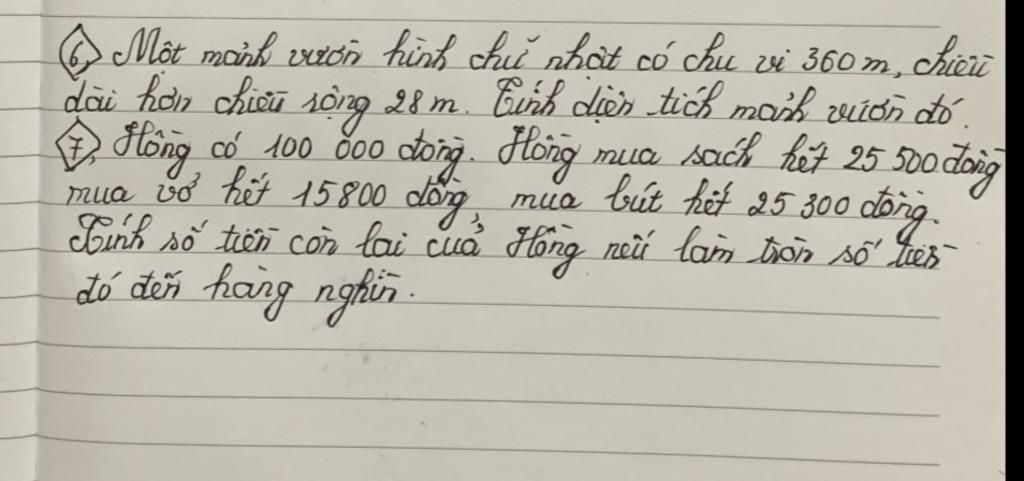 6, Một mảnh vườn hình chữ nhật có chu vi 360 m, chiều
dài hơn chiều rộng 28 m. Tính diện tích mảnh vườn đó.
7, Hồng có 100 000 đồng. Hồng mua sách hết 25 500 đồng
mua vở hết 15800 đồng, mua bút hết 25 300 đồng.
Tính số tiền còn lại của Hồng nếu làm tròn số tiền
đó đến hàng nghìn.